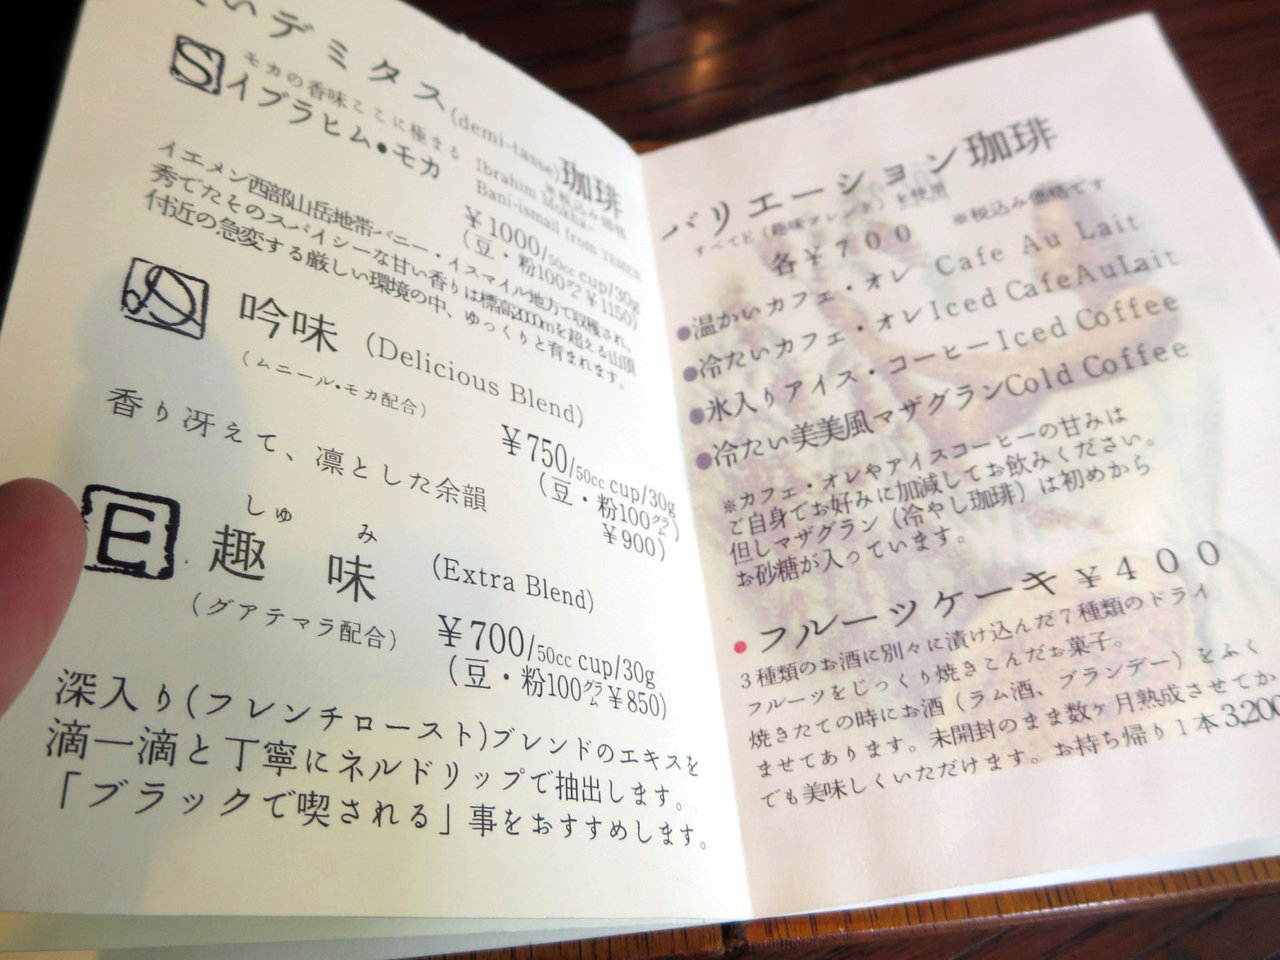 いデミタス(demi-tasse)珈琲
※税込み価格
モカの香味ここに極まる
S イブラヒム・モカ
Ibrahim Mokha-
Bani-ismail from YEMEN
¥1000/50cc cup/30g
(豆・粉100グラム¥1150)
イエメン西部山岳地帯バニー・イスマイル地方で収穫され、
秀でたそのスパイシーな甘い香りは標高2000mを超える山頂
付近の急変する厳しい環境の中、ゆっくりと育まれます。
D 吟味 (Delicious Blend)
(ムニール・モカ配合)
¥750/50cc cup/30g
(豆・粉100グラム
¥900)
香り冴えて、凛とした余韻
しゅ み
E 趣味 (Extra Blend)
(グアテマラ配合)
¥700/50cc cup/30g
(豆・粉100グラム¥850)
深入り(フレンチロースト)ブレンドのエキスを
滴一滴と丁寧にネルドリップで抽出します。
「ブラックで喫される」事をおすすめします。
バリエーション珈琲
すべてE(趣味ブレンド)を使用
各¥700 ※税込み価格です
●温かいカフェ・オレ Cafe Au Lait
●冷たいカフェ・オレ Iced CafeAuLait
●氷入りアイス・コーヒー Iced Coffee
●冷たい美美風マザグラン Cold Coffee
※カフェ・オレやアイスコーヒーの甘みは
ご自身でお好みに加減してお飲みください。
但しマザグラン(冷やし珈琲)は初めから
お砂糖が入っています。
●フルーツケーキ ¥400
3種類のお酒に別々に漬け込んだ7種類のドライ
フルーツをじっくり焼きこんだお菓子。
焼きたての時にお酒(ラム酒、ブランデー)をふく
ませてあります。未開封のまま数ヶ月熟成させてか
でも美味しくいただけます。お持ち帰り1本3,200